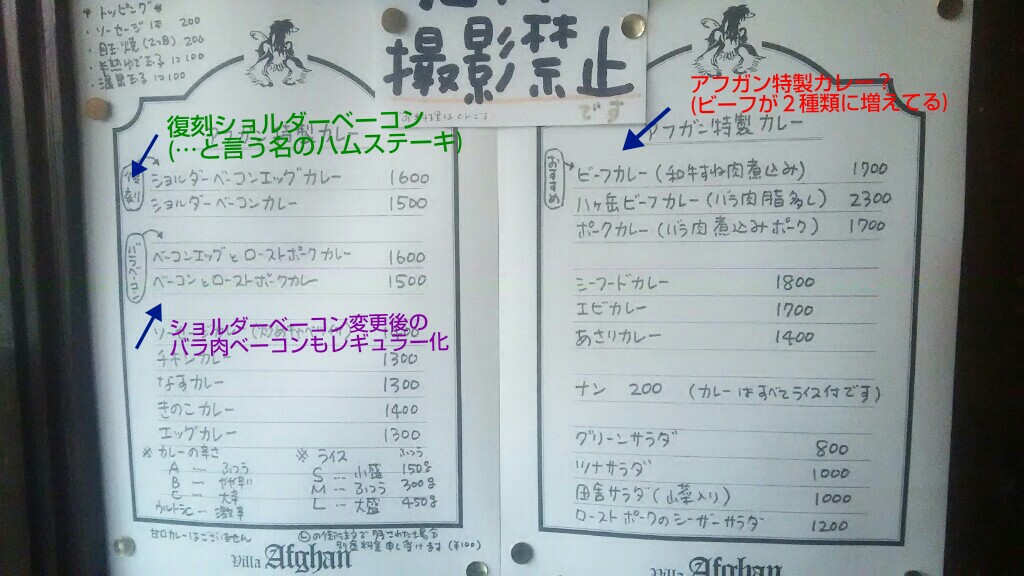 * トッピング *
・ソーセージ1本 200
・目玉焼(2ヶ目) 200
・半熟ゆで玉子 1コ 100
・温泉玉子 1コ 100
撮影禁止
です
復刻ショルダーベーコン
(…と言う名のハムステーキ)
アフガン特製カレー
復刻
ショルダーベーコンエッグカレー 1600
ショルダーベーコンカレー 1500
バラベーコン
ベーコンエッグとローストポークカレー 1600
ベーコンとローストポークカレー 1500
ショルダーベーコン変更後の
バラ肉ベーコンもレギュラー化
チキンカレー 1300
なすカレー 1300
きのこカレー 1400
エッグカレー 1300
※カレーの辛さ
A ‥‥ ふつう
B ‥‥ やや辛い
C ‥‥ 大辛
ウルトラC ‥‥ 激辛
※ライス
S ‥‥ 小盛 150g
M ‥‥ ふつう 300g
L ‥‥ 大盛 450g
甘口カレーはございません
別途料金申し受けます (¥100)
Villa Afghan
アフガン特製カレー?
(ビーフが2種類に増えてる)
アフガン特製カレー
おすすめ
ビーフカレー (和牛すね肉煮込み) 1700
八ヶ岳ビーフカレー (バラ肉脂多し) 2300
ポークカレー (バラ肉煮込みポーク) 1700
シーフードカレー 1800
エビカレー 1700
あさりカレー 1400
ナン 200 (カレーはすべてライス付です)
グリーンサラダ 800
ツナサラダ 1000
田舎サラダ (山菜入り) 1000
ローストポークのシーザーサラダ 1200
Villa Afghan